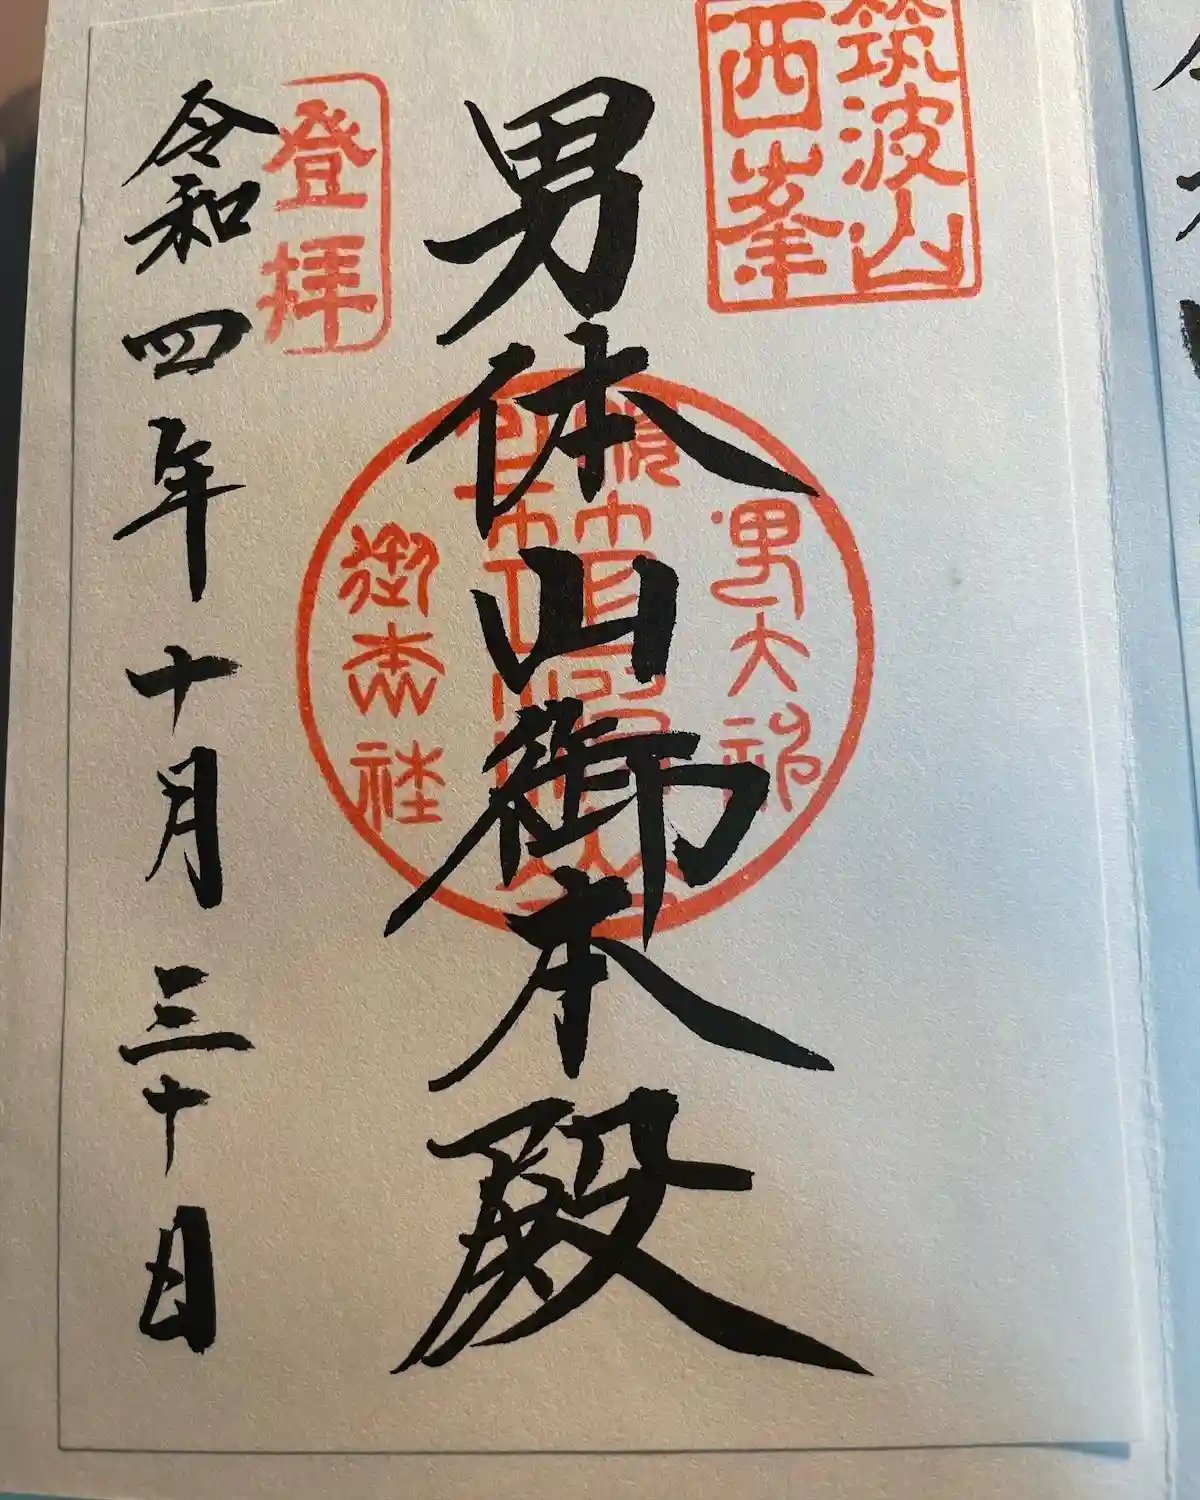 筑波山
西峯
男体山御本殿
男大神
御本社
登拝
令和四年十月三十日